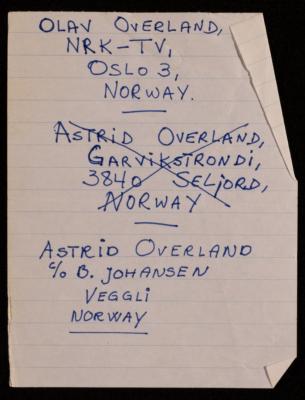 OLAV OVERLAND,
NRK-TV,
OSLO 3,
NORWAY.
ASTRID OVERLAND,
GARVIKSTRONDI,
3840 SELJORD,
NORWAY
ASTRID OVERLAND
c/o B. JOHANSEN
VEGGLI
NORWAY